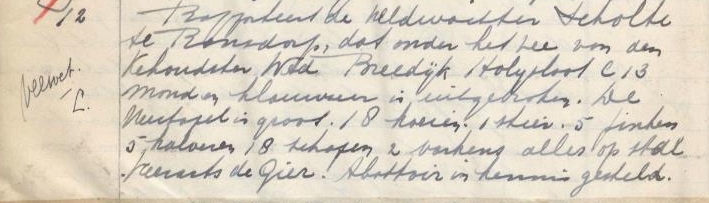 12 Rapporteert de veldwachter Scholte
te Ransdorp, dat onder het vee van den
Veehoudster Wed Breedijk Holysloot C 13
Mond en klauwzeer is uitgebroken. De
Veestapel is groot. 18 koeien. 1 stier. 5 pinken
5 kalveren 18 schapen 2 varkens alles op stal
Veearts de Gier. Abattoir in kennis gesteld.
veewet.
L.